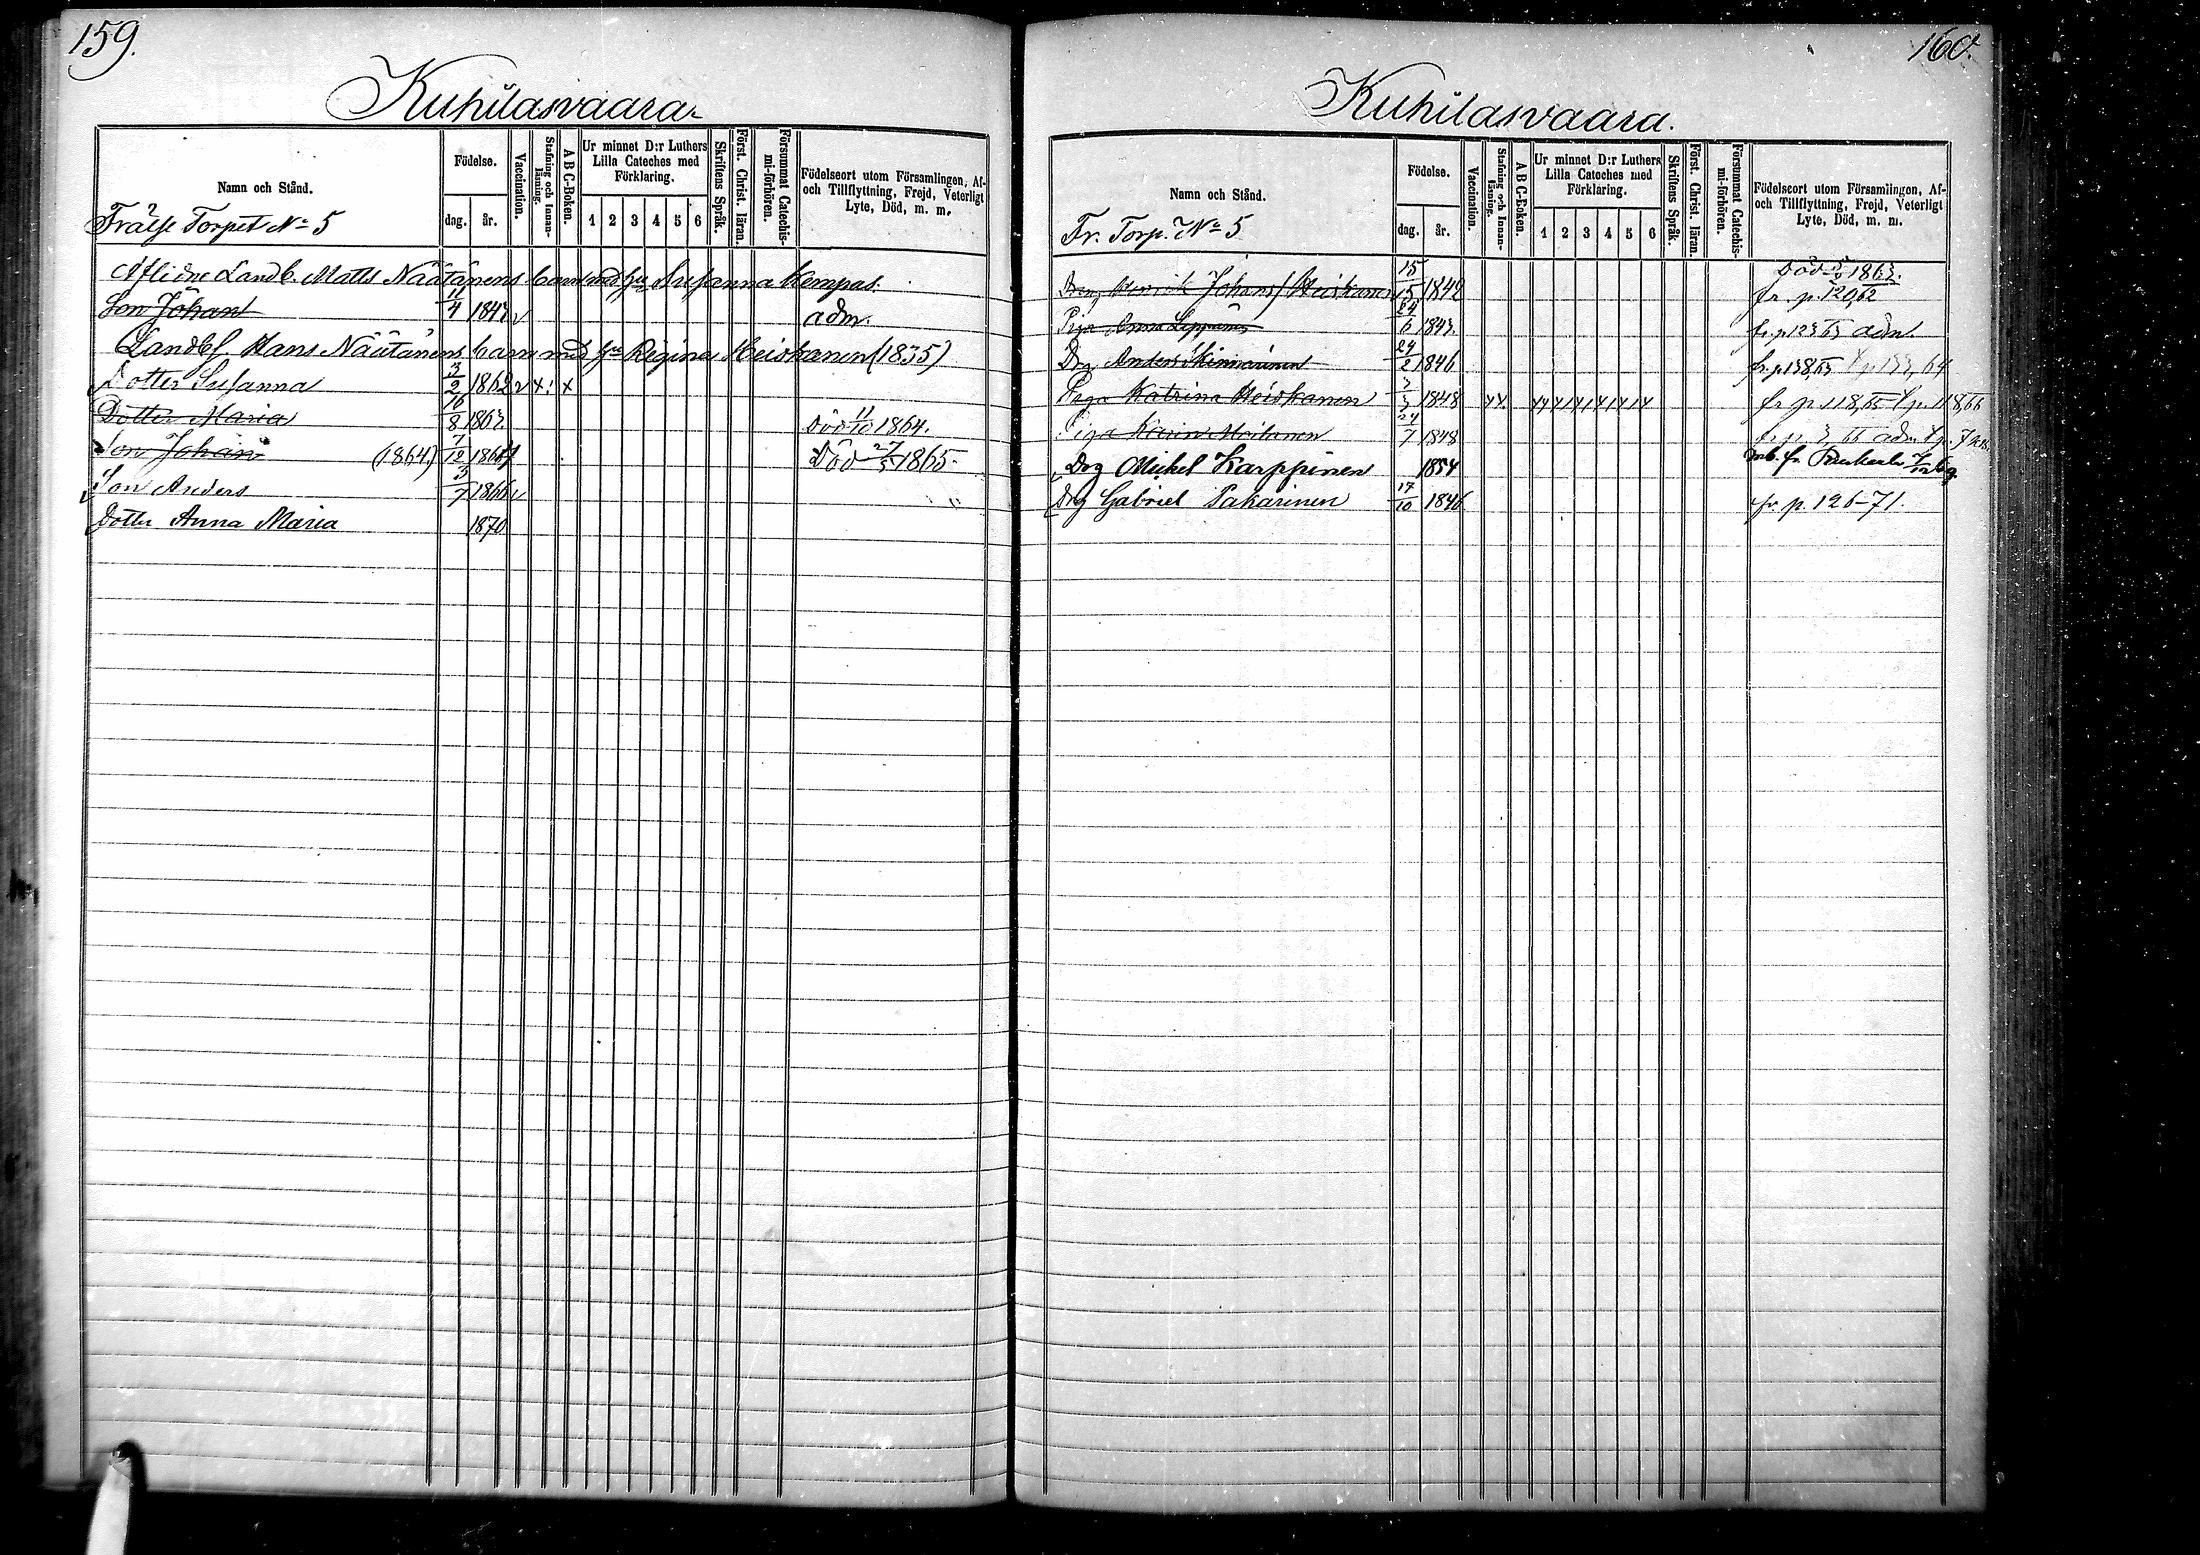 159.
Kuhilasvaara
Namn och Stånd.
Födelse.
dag. år.
Vaccination.
Stafning och Innanläsning.
A B C-Boken.
Ur minnet D:r Luthers Lilla Cateches med Förklaring.
1 2 3 4 5 6
Skriftens Språk.
Först. Christ. läran.
Försummat Catechismi-förhören.
Födelseort utom Församlingen, Af-
och Tillflyttning, Frejd, Veterligt
Lyte, Död, m. m.
Frälse Torpet No 5
Aflidne Landb. Matts Näätänens barn med hu Susanna Kempas.
Son Johan 11/4 1842 v adm.
Landbf. Hans Näätänens barn med hu Regina Heiskanen (1835)
Dotter Susanna 3/2 1862 v x: x
Dotter Maria 16/8 1863 Död 11/10 1864.
Son Johan (1864) 7/12 1864 Död 27/5 1865.
Son Anders 3/7 1866 v
Dotter Anna Maria 1870
160.
Kuhilasvaara.
Namn och Stånd.
Födelse.
dag. år.
Vaccination.
Stafning och Innanläsning.
A B C-Boken.
Ur minnet D:r Luthers Lilla Cateches med Förklaring.
1 2 3 4 5 6
Skriftens Språk.
Först. Christ. läran.
Försummat Catechismi-förhören.
Födelseort utom Församlingen, Af-
och Tillflyttning, Frejd, Veterligt
Lyte, Död, m. m.
Fr. Torp. No 5
Dreng Henrik Johans/Heiskanen 15/5 1842 Död 1863. fr. p. 120,62
Piga Anna Leppänen 24/6 1843. fr. p 123,63 adm.
Drg Anders 24/2 1846 fr. p 138,63 64
Piga Katrina Heiskanen 1848 xx. fr p. 118,65 p. 118,66
Piga Karin Moilanen 24/7 1848 66 adm
Drg Mickel Karppinen 1854
Drg Gabriel Pakarinen 17/10 1846 fr. p. 126-71.